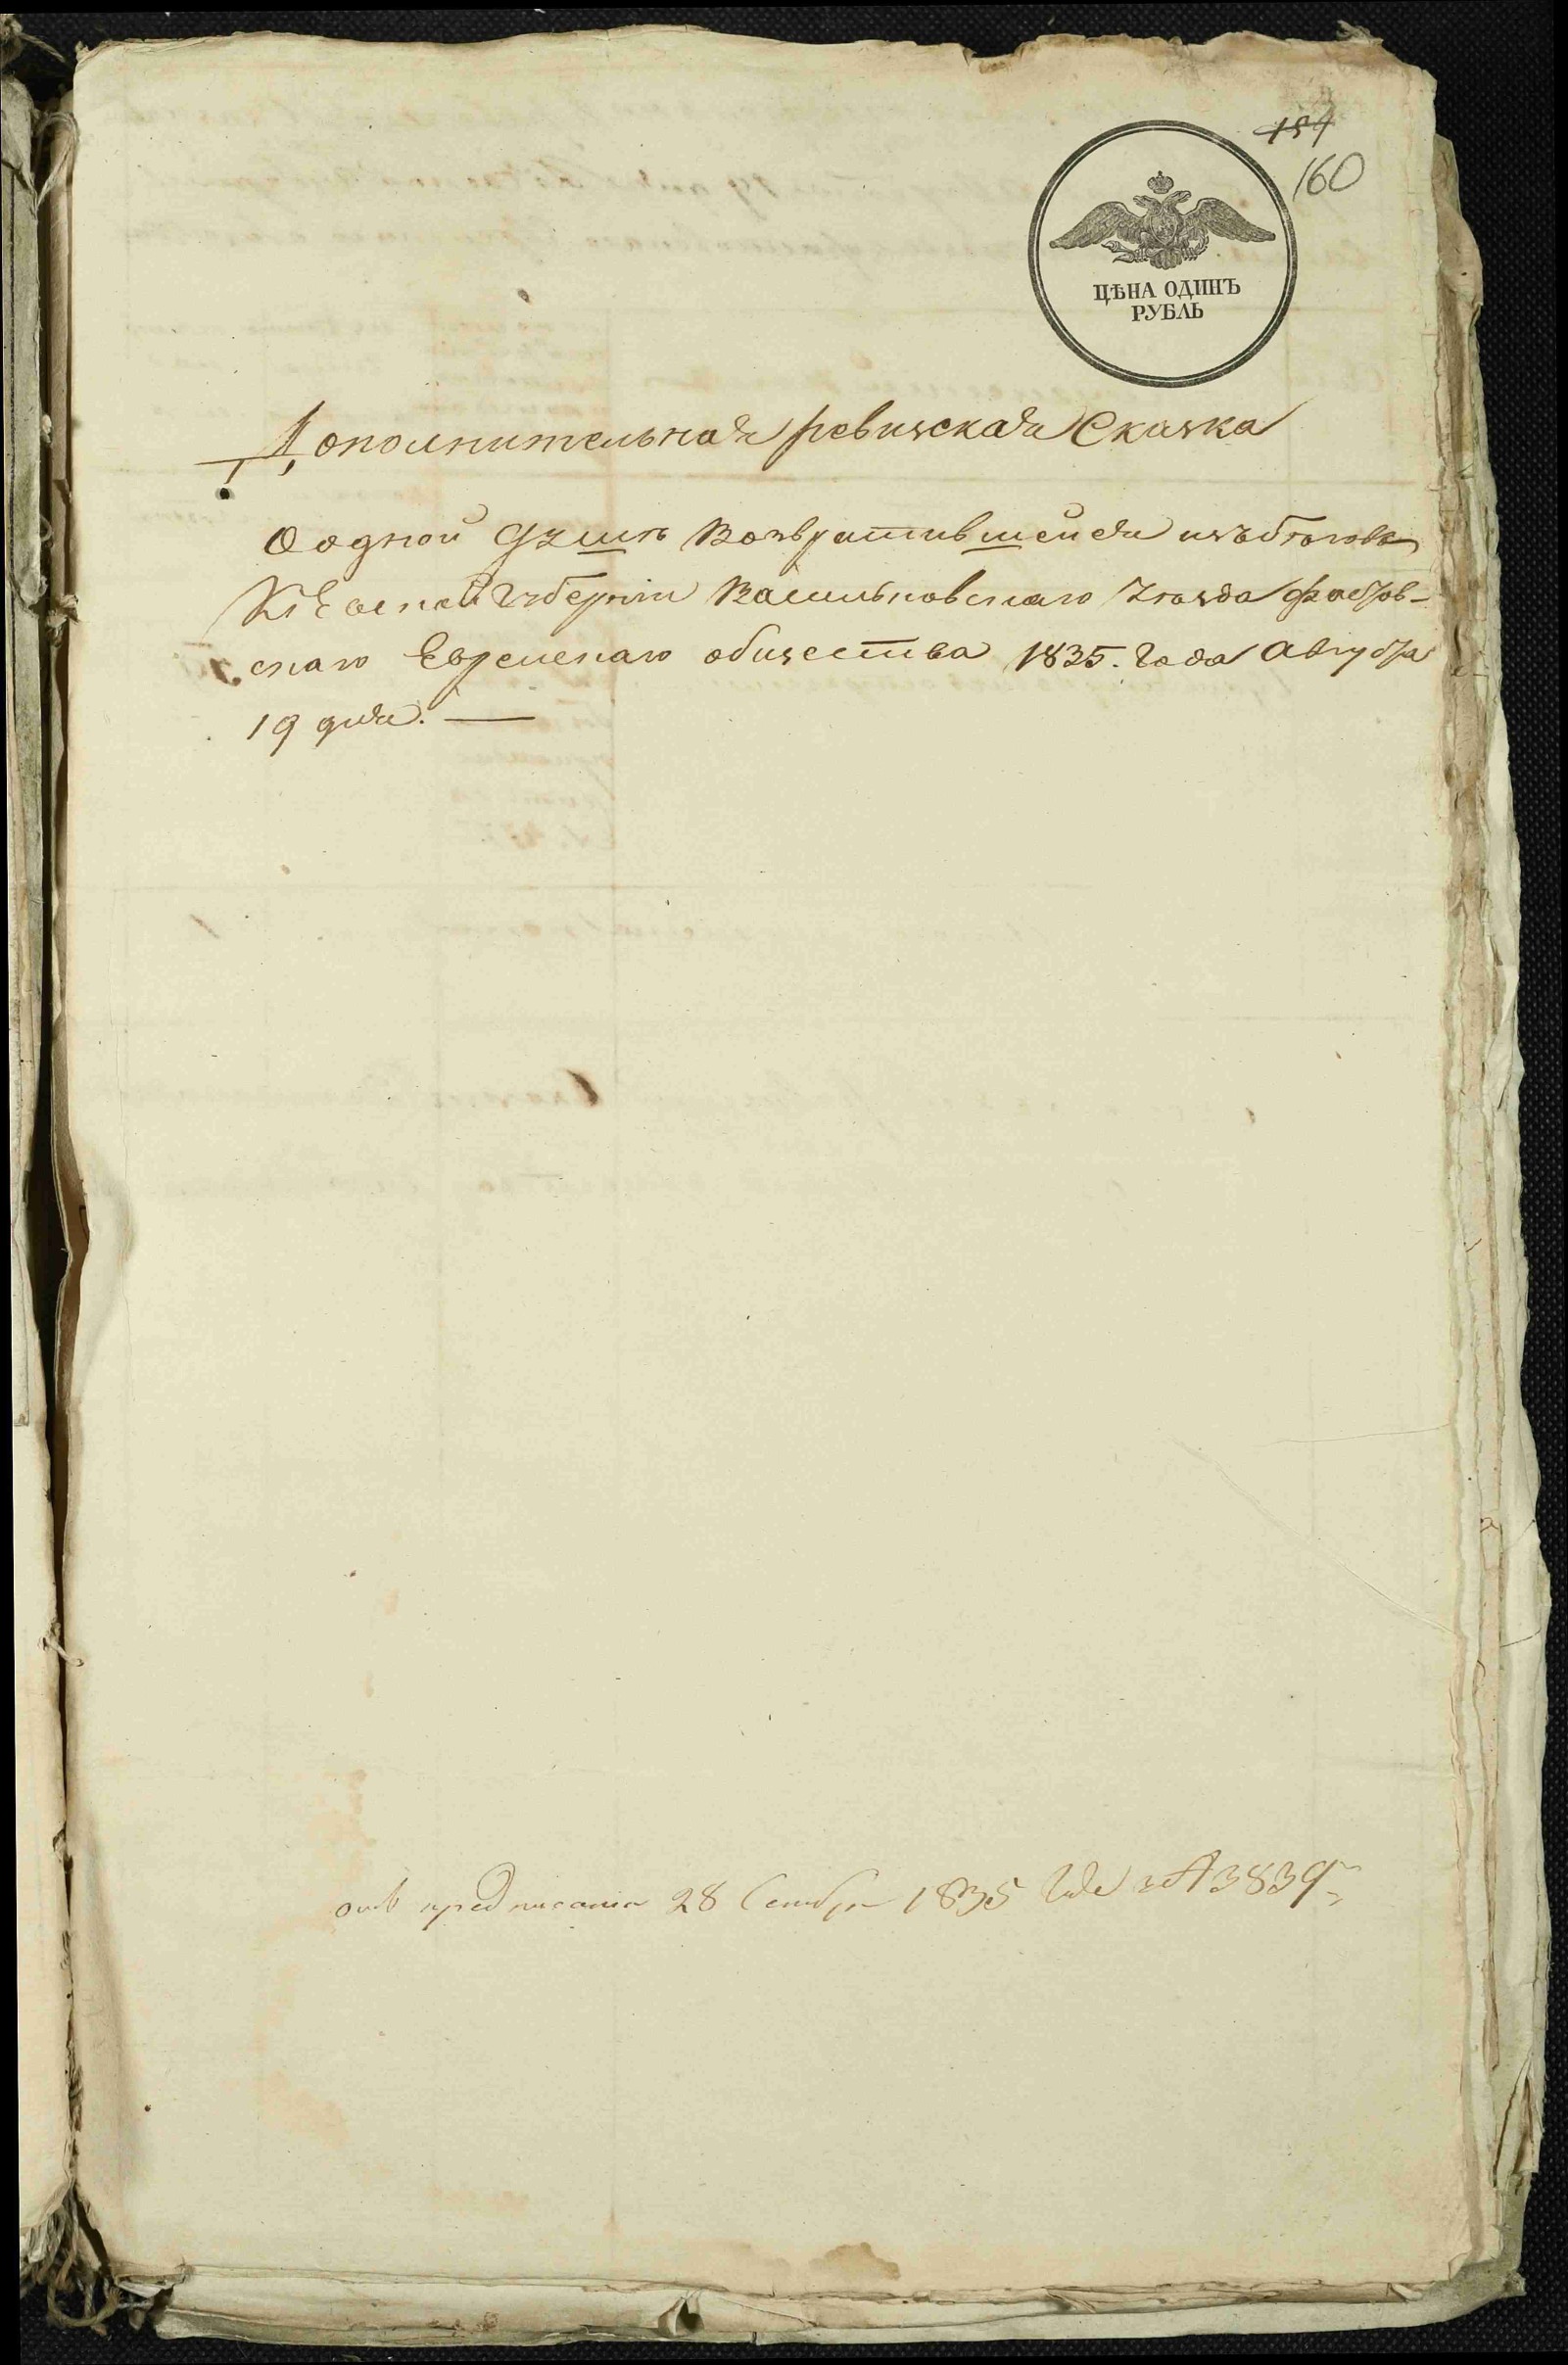 154
160
ЦѢНА ОДИНЪ
РУБЛЬ
Дополнительная ревизская Сказка
О одной душѣ возвратившейся изъ бѣговъ
Кіевской Губерніи Васильковскаго уѣзда Фастов-
скаго Еврейскаго общества 1835. года Августа
19 дня.
предписанія 28 Сентября 1835 года 3839